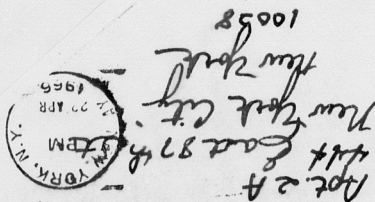 Apt. 2A
444 East 87th St.
New York City
New York
10028
NEW YORK, N.Y.
PM
22 APR
1966